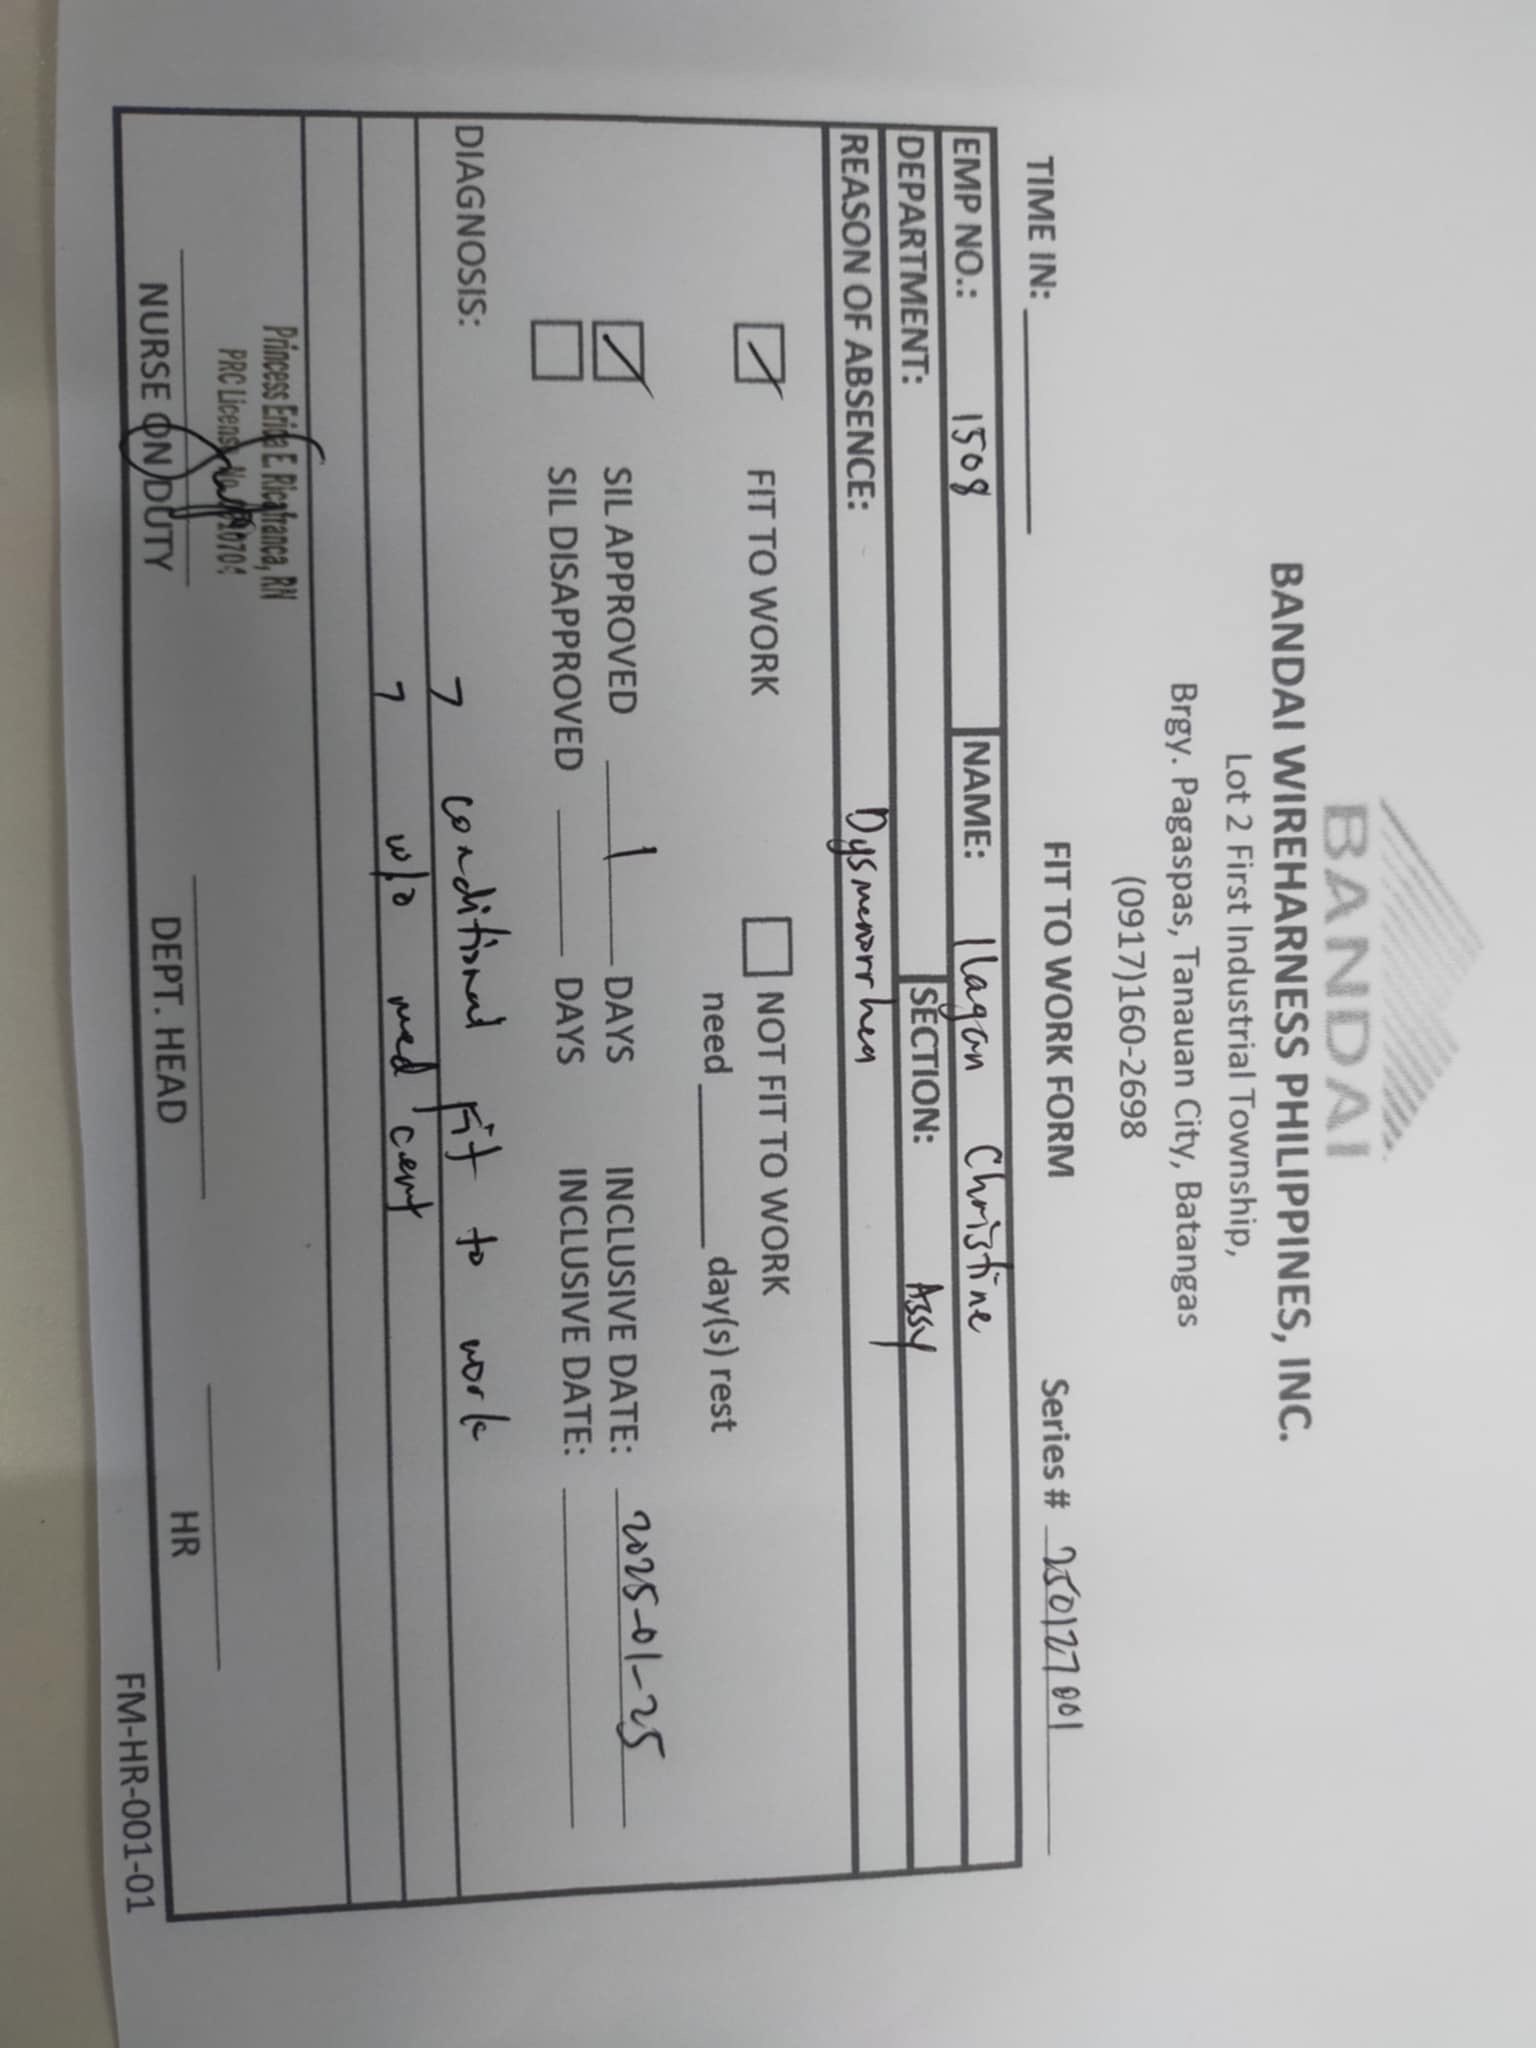 BANDAI
BANDAI WIREHARNESS PHILIPPINES, INC.
Lot 2 First Industrial Township,
Brgy. Pagaspas, Tanauan City, Batangas
(0917)160-2698
FIT TO WORK FORM
TIME IN: Series # 250127001
EMP NO.: 1508 NAME: Ilagan Christine
DEPARTMENT: SECTION: Assy
REASON OF ABSENCE: Dysmenorrhea
FIT TO WORK NOT FIT TO WORK
need day(s) rest
SIL APPROVED 1 DAYS INCLUSIVE DATE: 2025-01-25
SIL DISAPPROVED DAYS INCLUSIVE DATE:
DIAGNOSIS:
7 conditional Fit to work
7 w/o med cert
Princess Erica E. Ricafranca, RN
PRC License No.
NURSE ON DUTY DEPT. HEAD HR
FM-HR-001-01